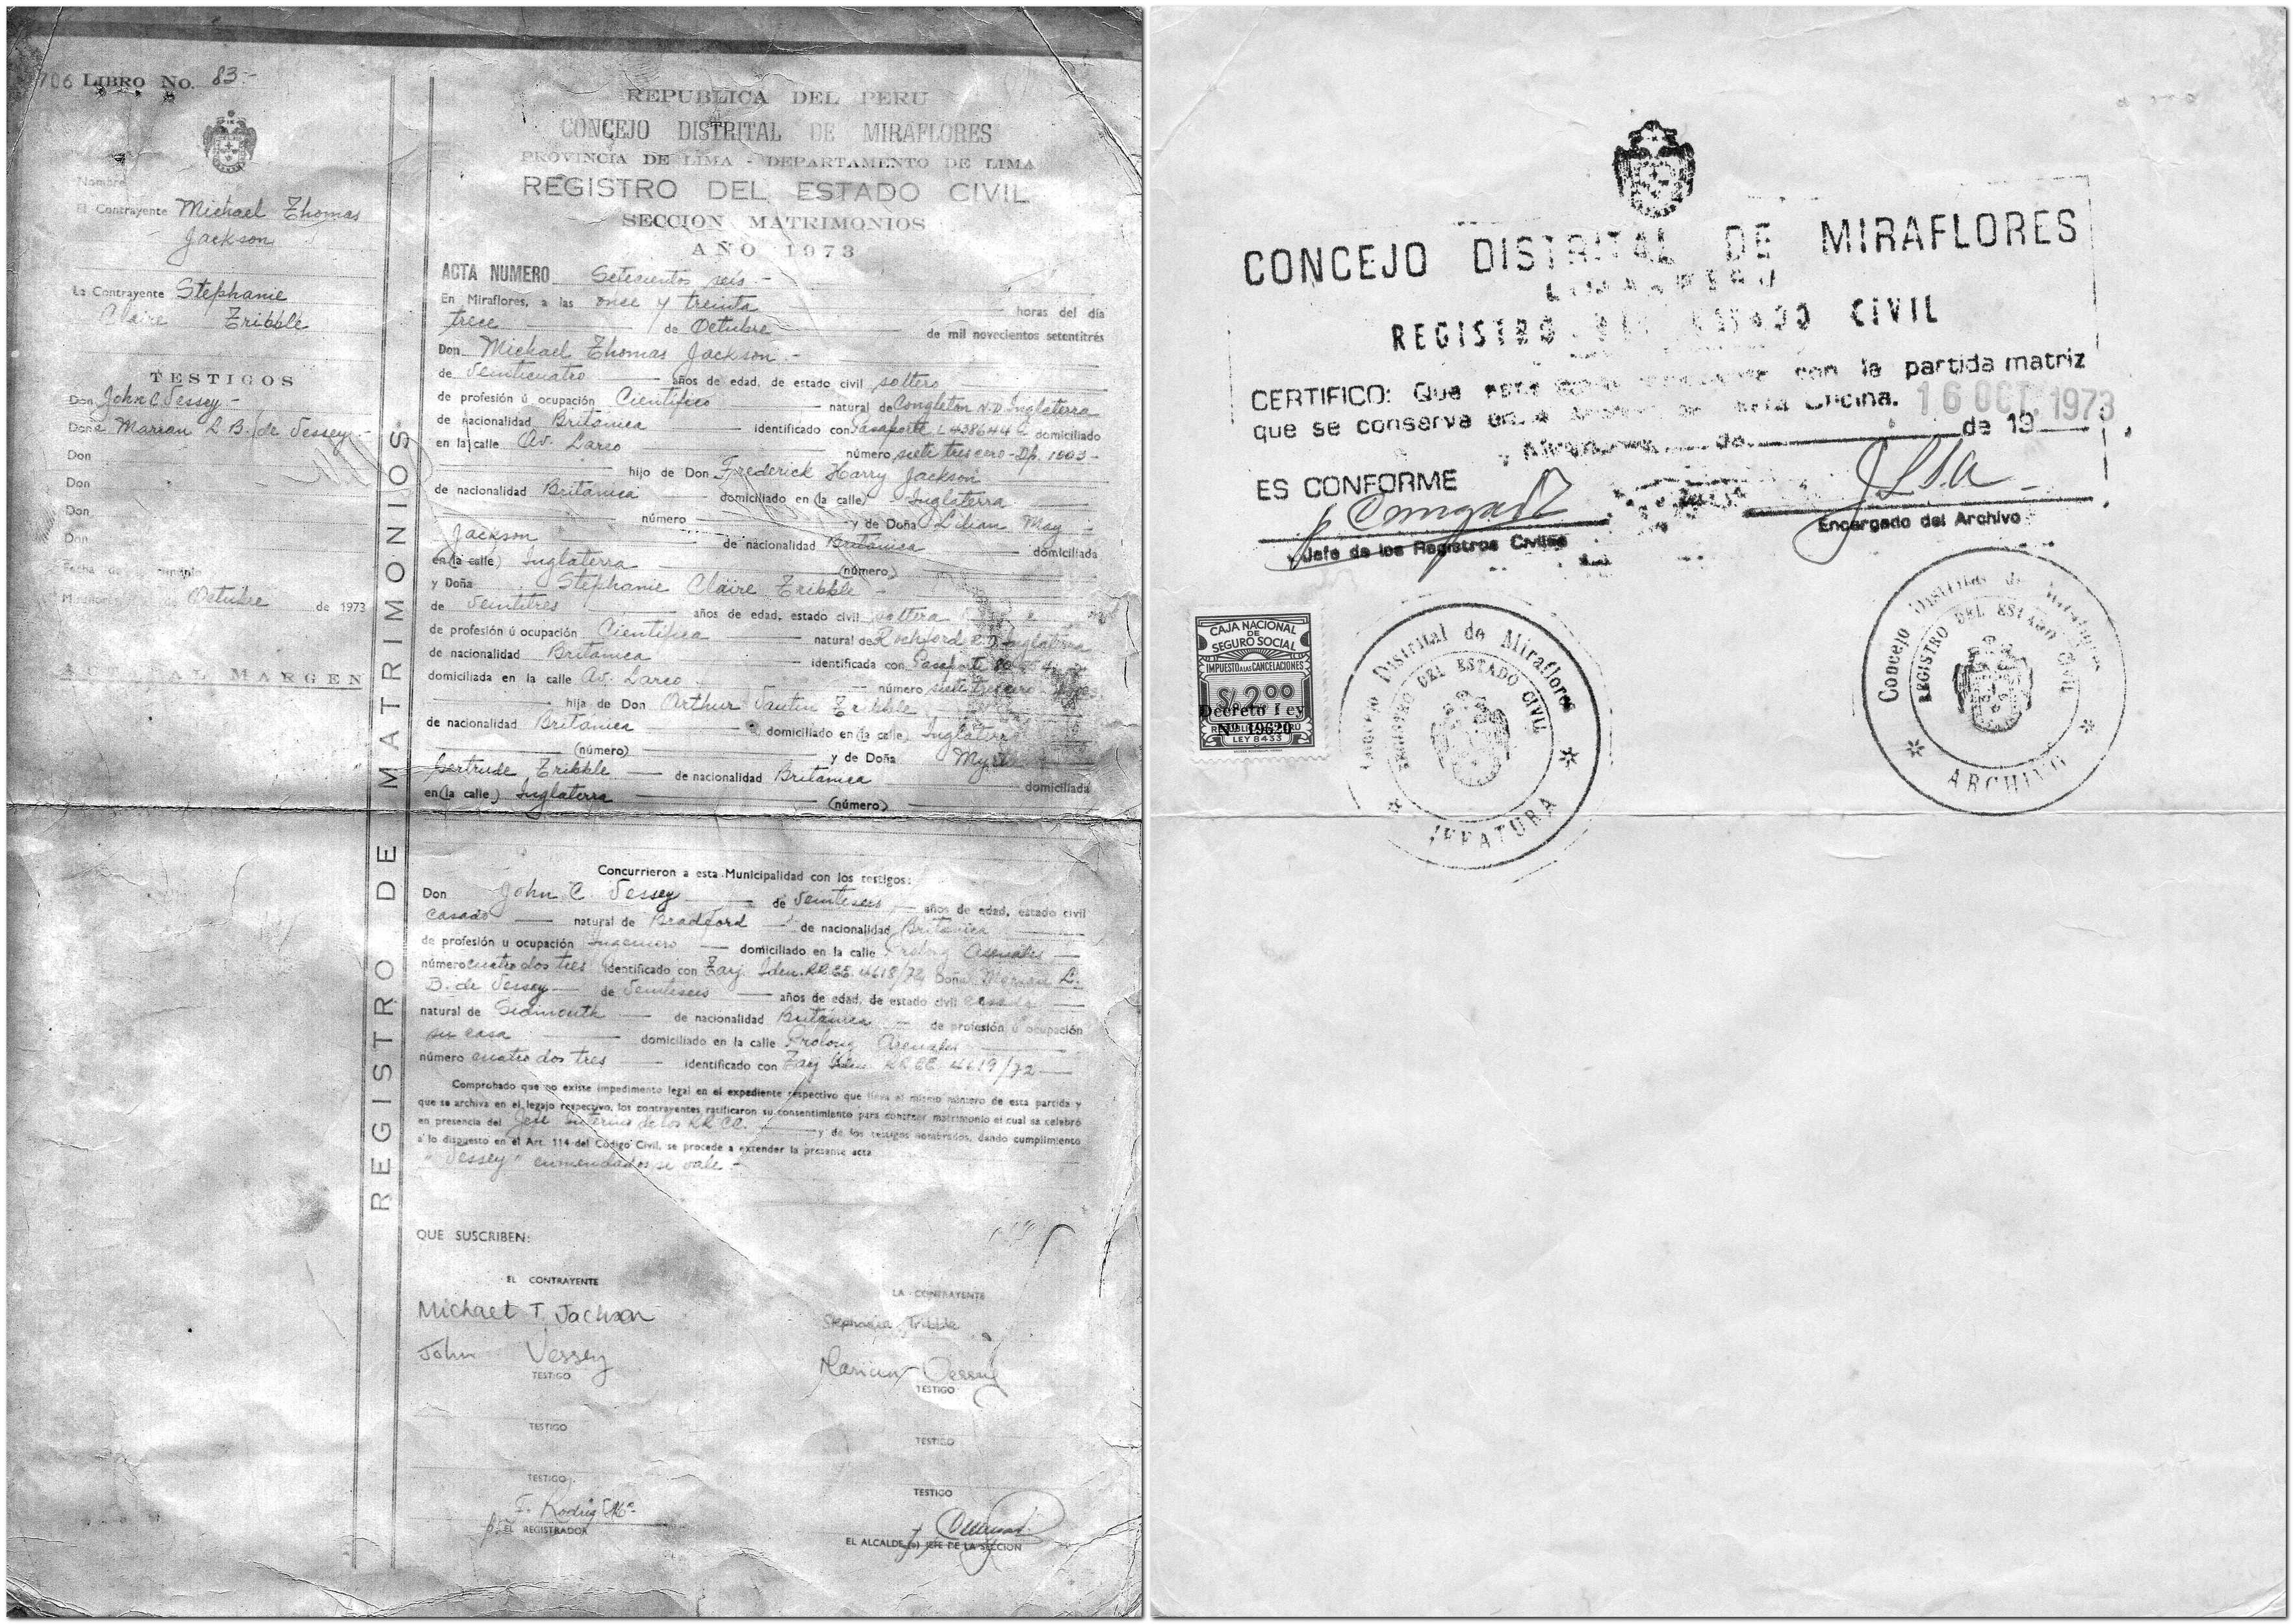 706 LIBRO No. 83-
Nombre
El Contrayente Michael Thomas
Jackson
La Contrayente Stephanie
Claire Tribble
TESTIGOS
Don John C. Vessey -
Doña Marian L. B. de Vessey -
Don
Don
Don
Don
Octubre de 1973
MARGEN
REGISTRO DE MATRIMONIOS
REPUBLICA DEL PERU
CONCEJO DISTRITAL DE MIRAFLORES
PROVINCIA DE LIMA - DEPARTAMENTO DE LIMA
REGISTRO DEL ESTADO CIVIL
SECCION MATRIMONIOS
AÑO 1973
ACTA NUMERO Setecientos seis -
En Miraflores, a las once y treinta horas del día
trece de Octubre de mil novecientos setentitrés
Don Michael Thomas Jackson -
de Veinticuatro años de edad, de estado civil soltero
de profesión ú ocupación Científico natural de Congleton N.D Inglaterra
de nacionalidad Británica identificado con Pasaporte L 438644 C domiciliado
en la calle Av. Larco número siete tres cero - Dp. 1003 -
hijo de Don Frederick Harry Jackson
de nacionalidad Británica domiciliado en (la calle) Inglaterra
número y de Doña Lilian May
Jackson de nacionalidad Británica domiciliada
en (la calle) Inglaterra (número)
y Doña Stephanie Claire Tribble -
de Veintitres años de edad, estado civil soltera
de profesión ú ocupación Científica natural de Rochford
de nacionalidad Británica identificada con Pasaporte
domiciliada en la calle Av. Larco número siete tres cero
hija de Don Arthur Tribble
de nacionalidad Británica domiciliado en (la calle) Inglaterra
(número) y de Doña
Gertrude Tribble de nacionalidad Británica domiciliada
en (la calle) Inglaterra (número)
Concurrieron a esta Municipalidad con los testigos:
Don John C. Vessey de Veintiseis años de edad, estado civil
casado natural de Bradford de nacionalidad Británica
de profesión u ocupación Ingeniero domiciliado en la calle Prolong Arenales
número cuatro dos tres identificado con Tarj. Iden. RR.EE. 4618/72 Doña Marian L.
B. de Vessey de Veintiseis años de edad, de estado civil casada
natural de Sidmouth de nacionalidad Británica de profesión ú ocupación
su casa domiciliado en la calle Prolong Arenales
número cuatro dos tres identificado con Tarj Iden RR EE 4619/72
Comprobado que no existe impedimento legal en el expediente respectivo que lleva el mismo número de esta partida y
que se archiva en el legajo respectivo, los contrayentes ratificaron su consentimiento para contraer matrimonio el cual se celebró
en presencia del Jefe Interino de los RR CC. y de los testigos nombrados, dando cumplimiento
a lo dispuesto en el Art. 114 del Código Civil, se procede a extender la presente acta
"Vessey" enmendados si vale -
QUE SUSCRIBEN:
EL CONTRAYENTE LA CONTRAYENTE
Michael T Jackson Stephanie Tribble
John Vessey Marian Vessey
TESTIGO TESTIGO
TESTIGO TESTIGO
TESTIGO TESTIGO
EL REGISTRADOR
EL ALCALDE (o) JEFE DE LA SECCION
CONCEJO DISTRITAL DE MIRAFLORES
LIMA - PERU
REGISTRO DEL ESTADO CIVIL
CERTIFICO: Que con la partida matriz
que se conserva en Oficina. 16 OCT. 1973
Miraflores de de 19
ES CONFORME
Jefe de los Registros Civiles
Encargado del Archivo
CAJA NACIONAL
DE
SEGURO SOCIAL
IMPUESTO A LAS CANCELACIONES
S/. 2.00
Decreto Ley
Nº 19620
LEY 8433
Concejo Distrital de Miraflores
REGISTRO DEL ESTADO CIVIL
JEFATURA
Concejo Distrital de Miraflores
REGISTRO DEL ESTADO CIVIL
ARCHIVO